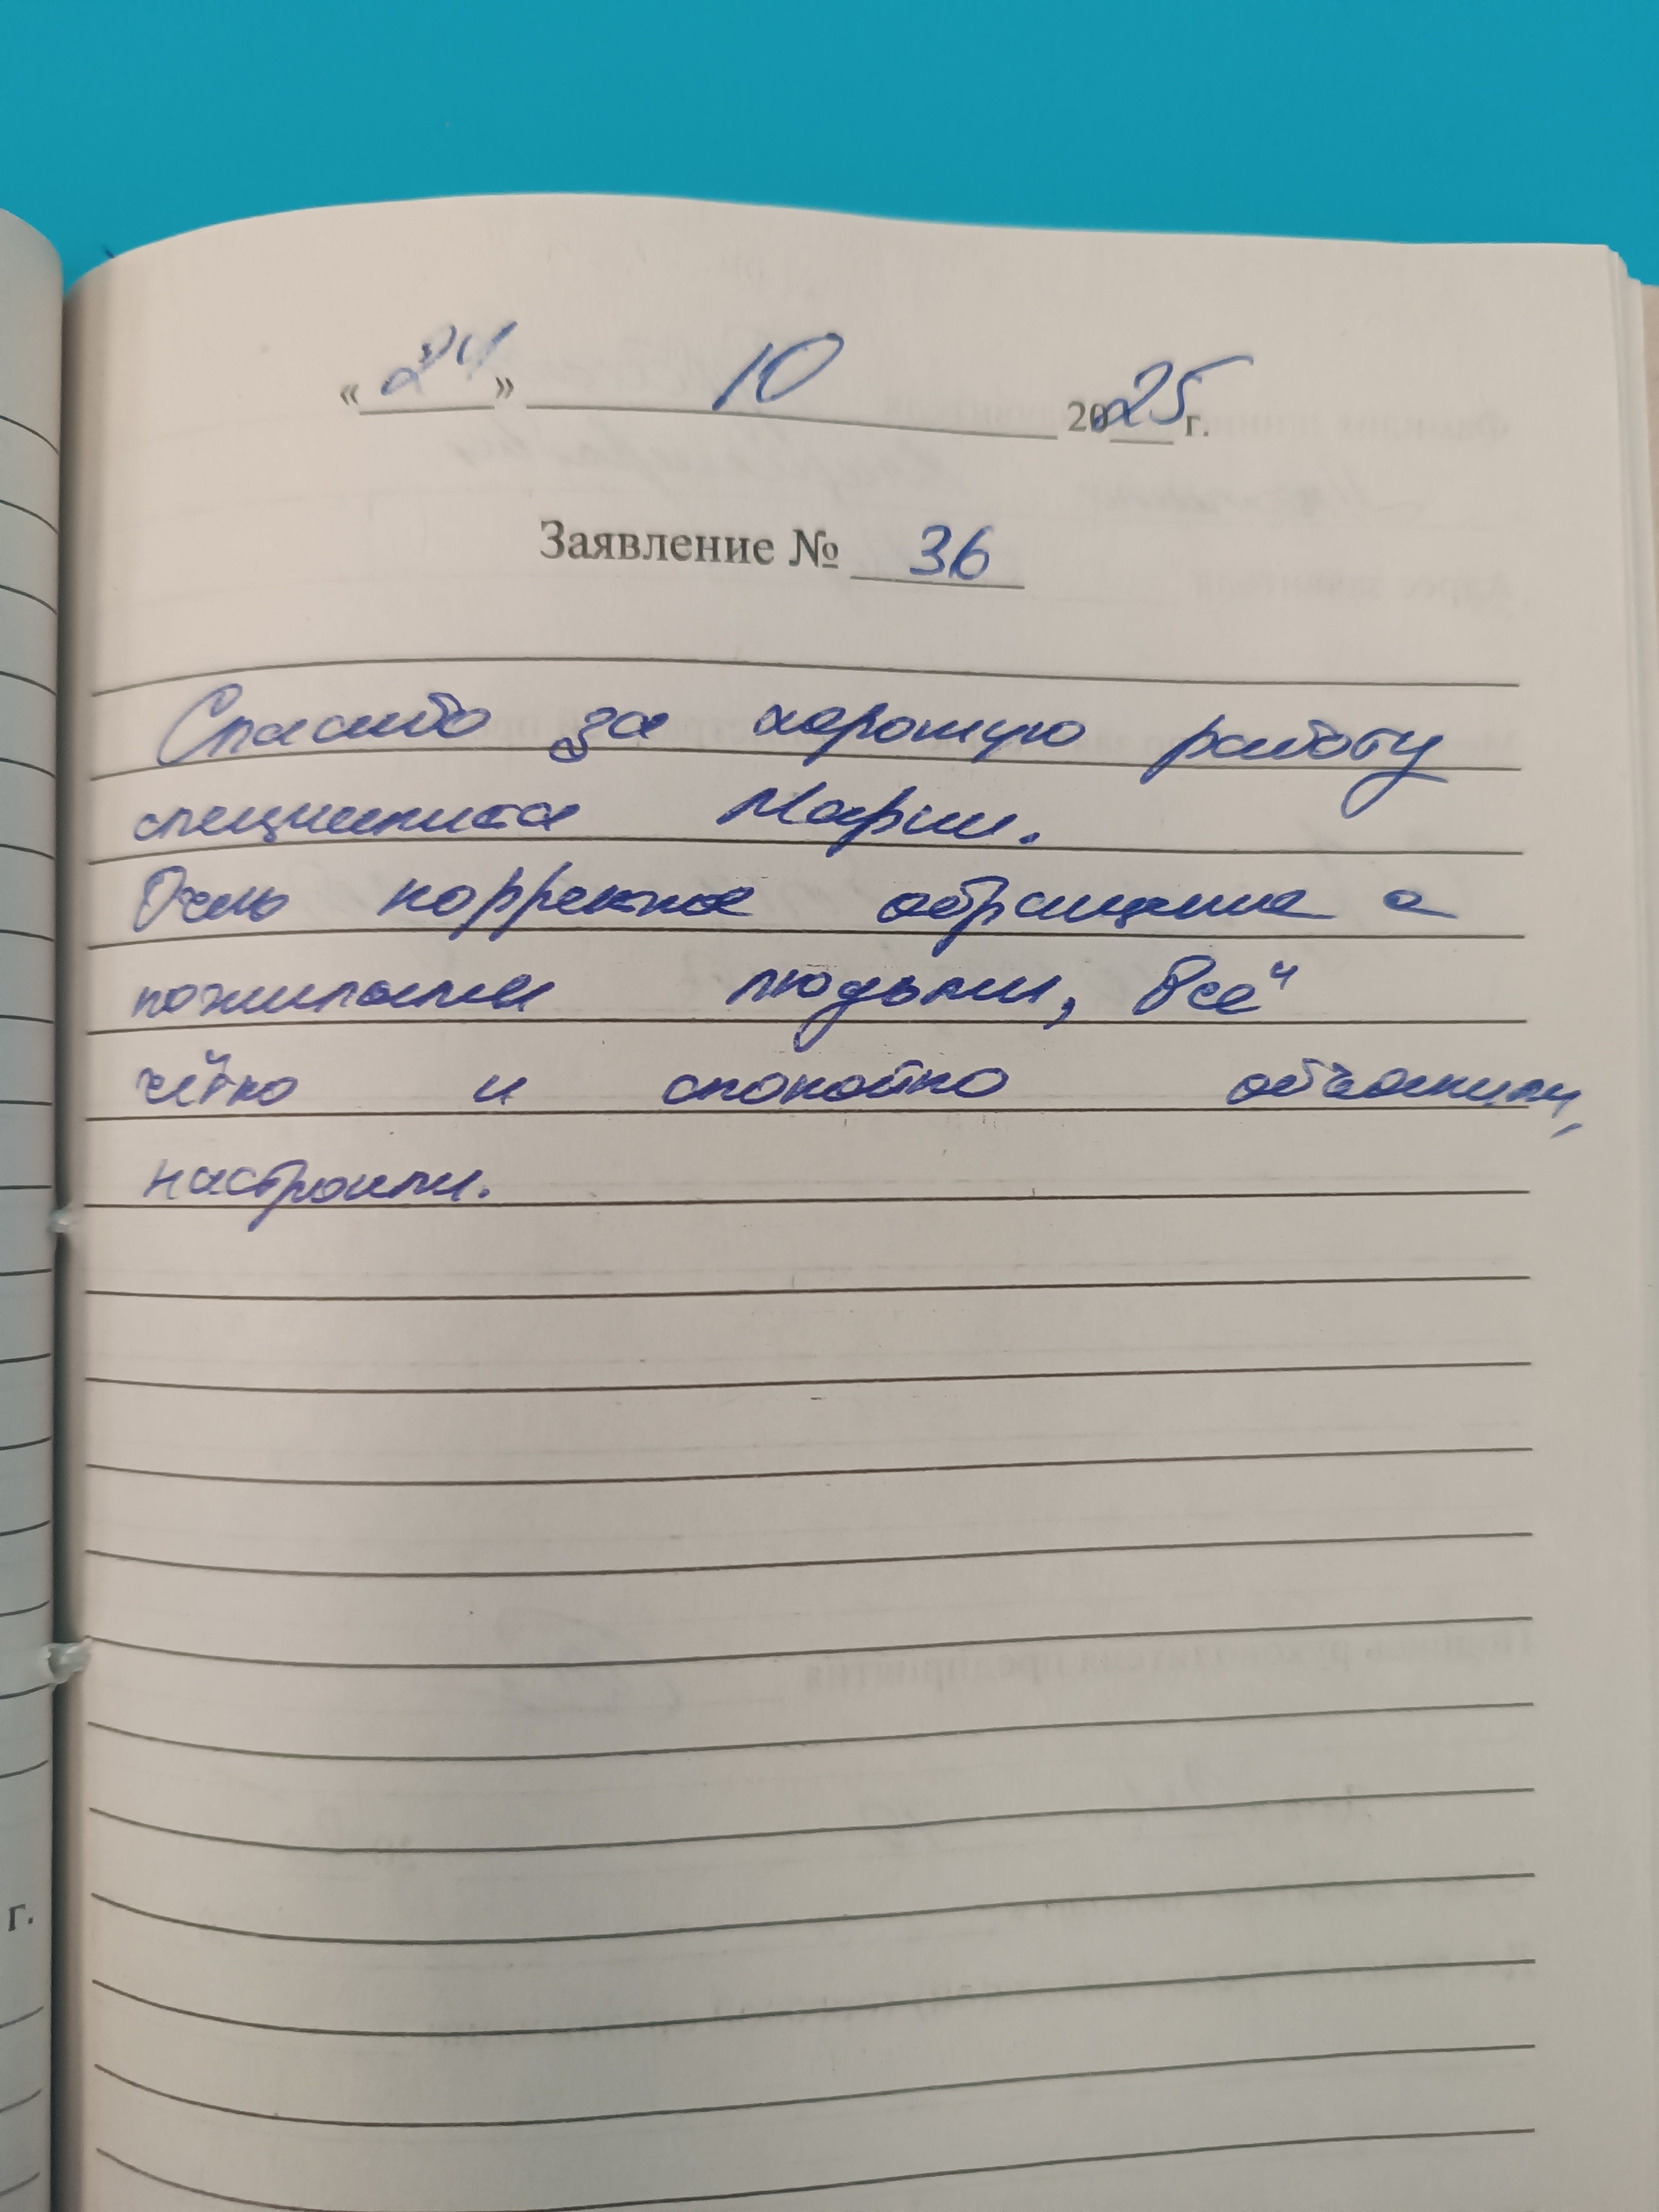 «24» 10 2025 г.
Заявление № 36
Спасибо за хорошую работу
специалиста Марии.
Очень корректное обращение с
пожилыми людьми, всё
чётко и спокойно объяснили,
настроили.
г.